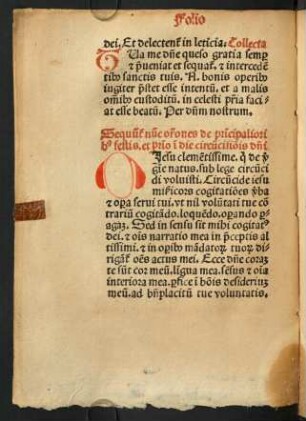 Folio
dei. Et delectent̃ in leticia. Collecta
TUa me dñe queso gratia semp
⁊ p̃ueniat et sequat̃. ⁊ intercedẽ
tib⁹ sanctis tuis. A bonis operib⁹
iugiter p̃stet esse intentũ. et a malis
omib⁹ custoditũ. in celesti p̃ria faci
at esse beatũ. Per dñm nostrum.
Sequũt̃ nũc orõnes de prĩcipaliori
b⁹ festis. et prio ĩ die circũcisiõis dñi
OIesu clemẽtissime. q̃ de ṽ
gĩe natus. sub lege circũci
di voluisti. Circũcide iesu
mĩsericors cogitatiões ṽba
et oꝑa serui tui. vt nil volũtati tue cõ
trariũ cogitãdo. loquẽdo. oꝑando ꝑ
agaꝫ. Sed in sensu sit mihi cogitat⁹
dei. ⁊ oĩs narratio mea in p̃cept̃is al
tissimi. ⁊ in oprib⁹ mãdatoꝝ tuoꝝ di
rigãt̃ oẽs actus mei. Ecce dñe coraꝫ
te sũt cor meũ. lĩgua mea. sẽsus ⁊ oĩa
interiora mea. ꝑfice ĩ hõis desideriuꝫ
meũ. ad bñplacitũ tue voluntatis.